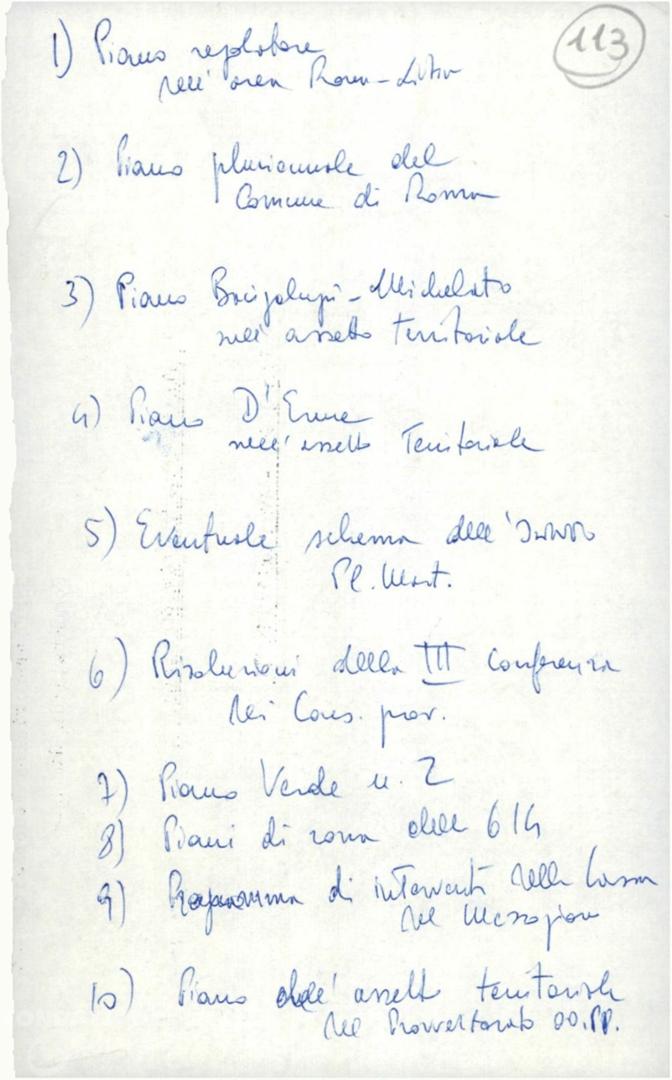 113
1) Piano regolatore
nell'area Roma-Latina
2) Piano pluriennale del
Comune di Roma
3) Piano Bacigalupi-Michelato
sull'assetto territoriale
4) Piano D'Erme
sull'assetto Territoriale
5) Eventuale schema dell'
Pl. Mort.
6) Risoluzioni della III Conferenza
dei Cons. prov.
7) Piano Verde n. 2
8) Piani di zona della 614
9) Programma di interventi della Cassa
del Mezzogiorno
10) Piano dell'assetto territoriale
del Provveditorato OO.PP.